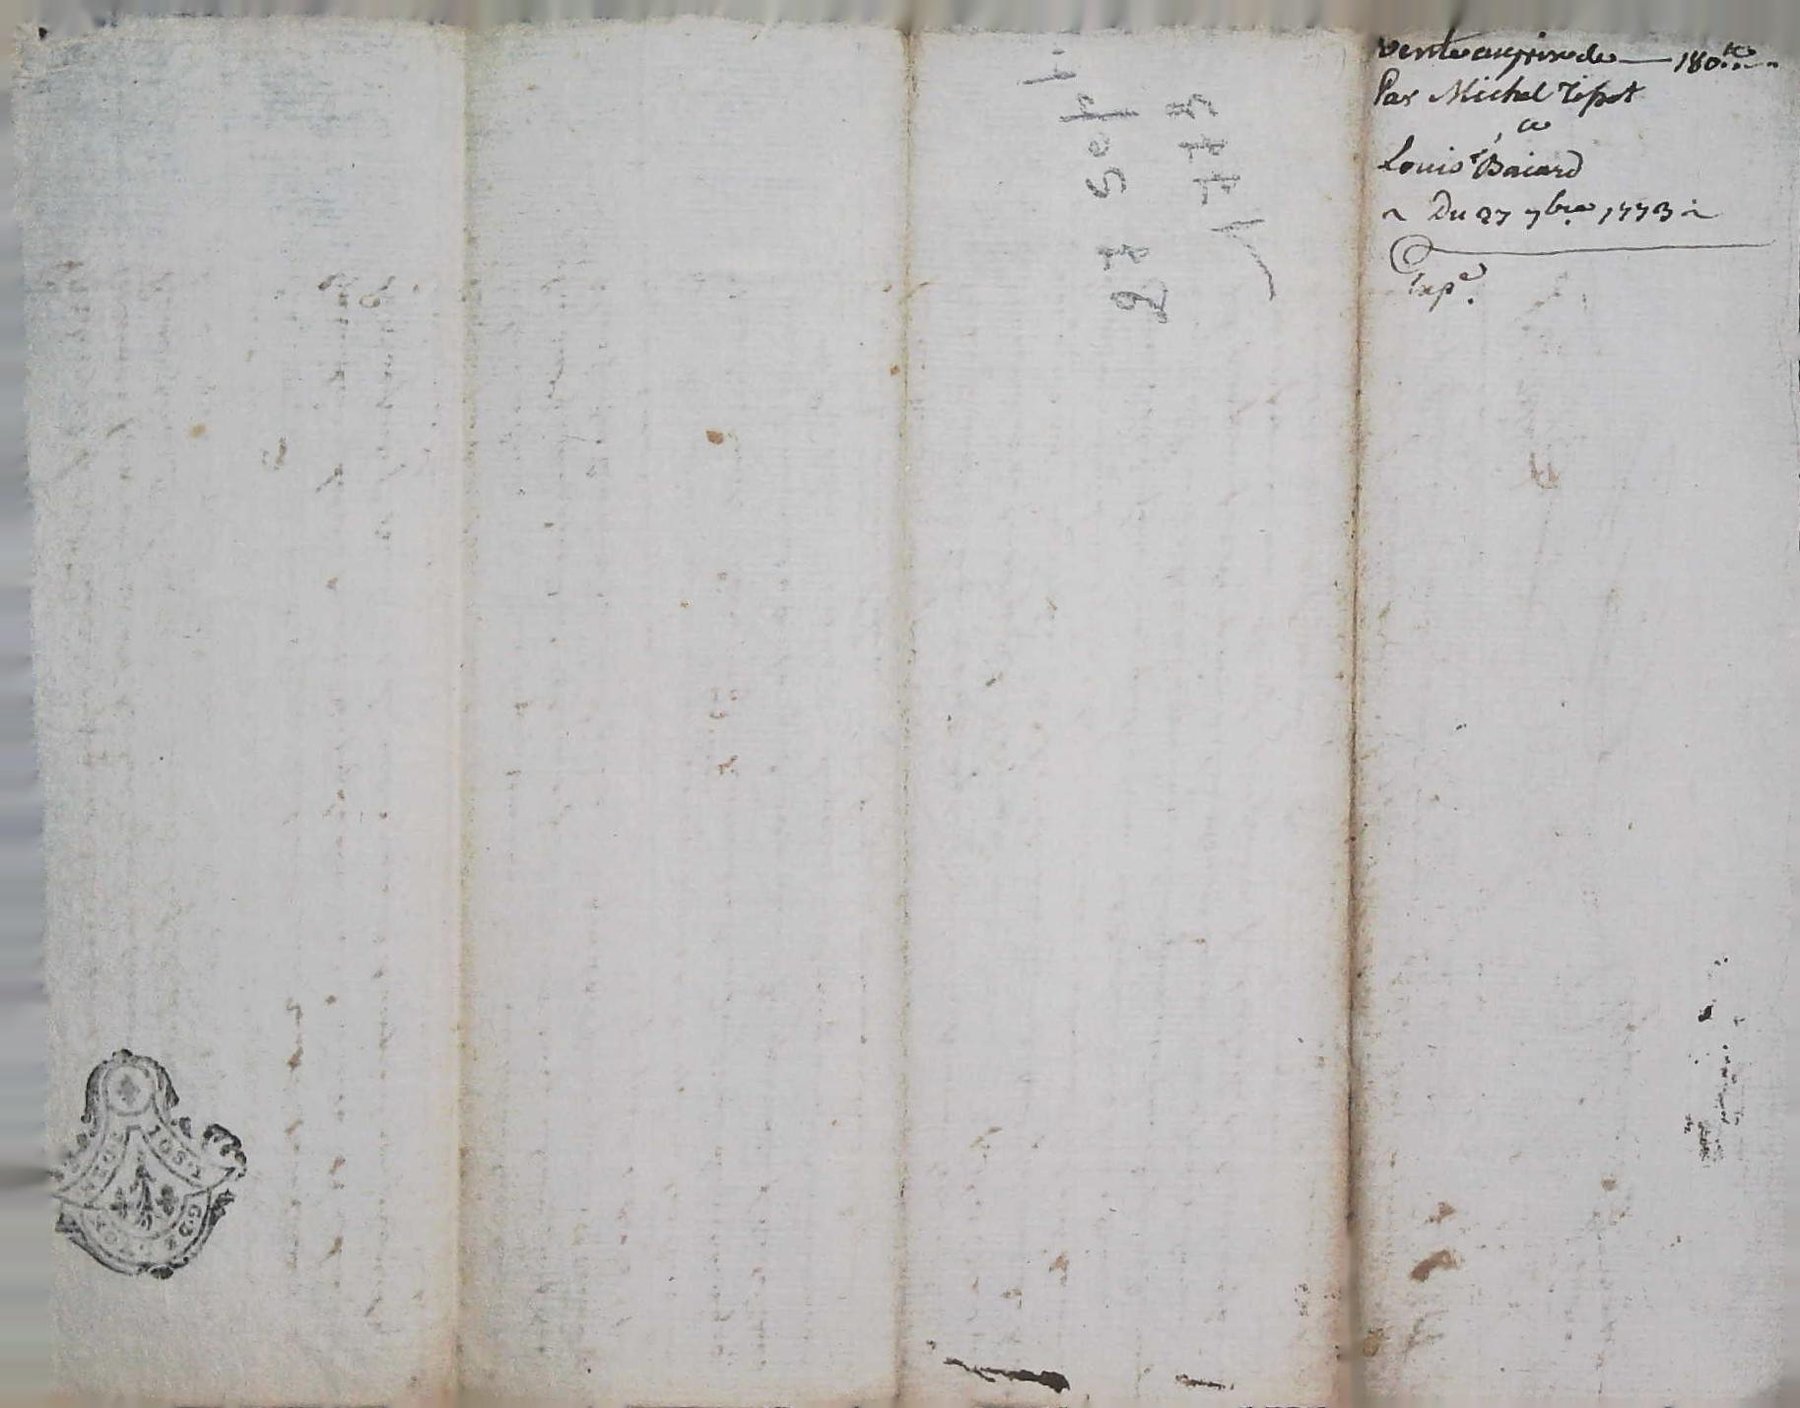 vente au prix de — 180 ₶
Par Michel Tipot
a
Louis Baiard
~ Du 27 7bre 1773 ~
Expe.
27 Sept
1773